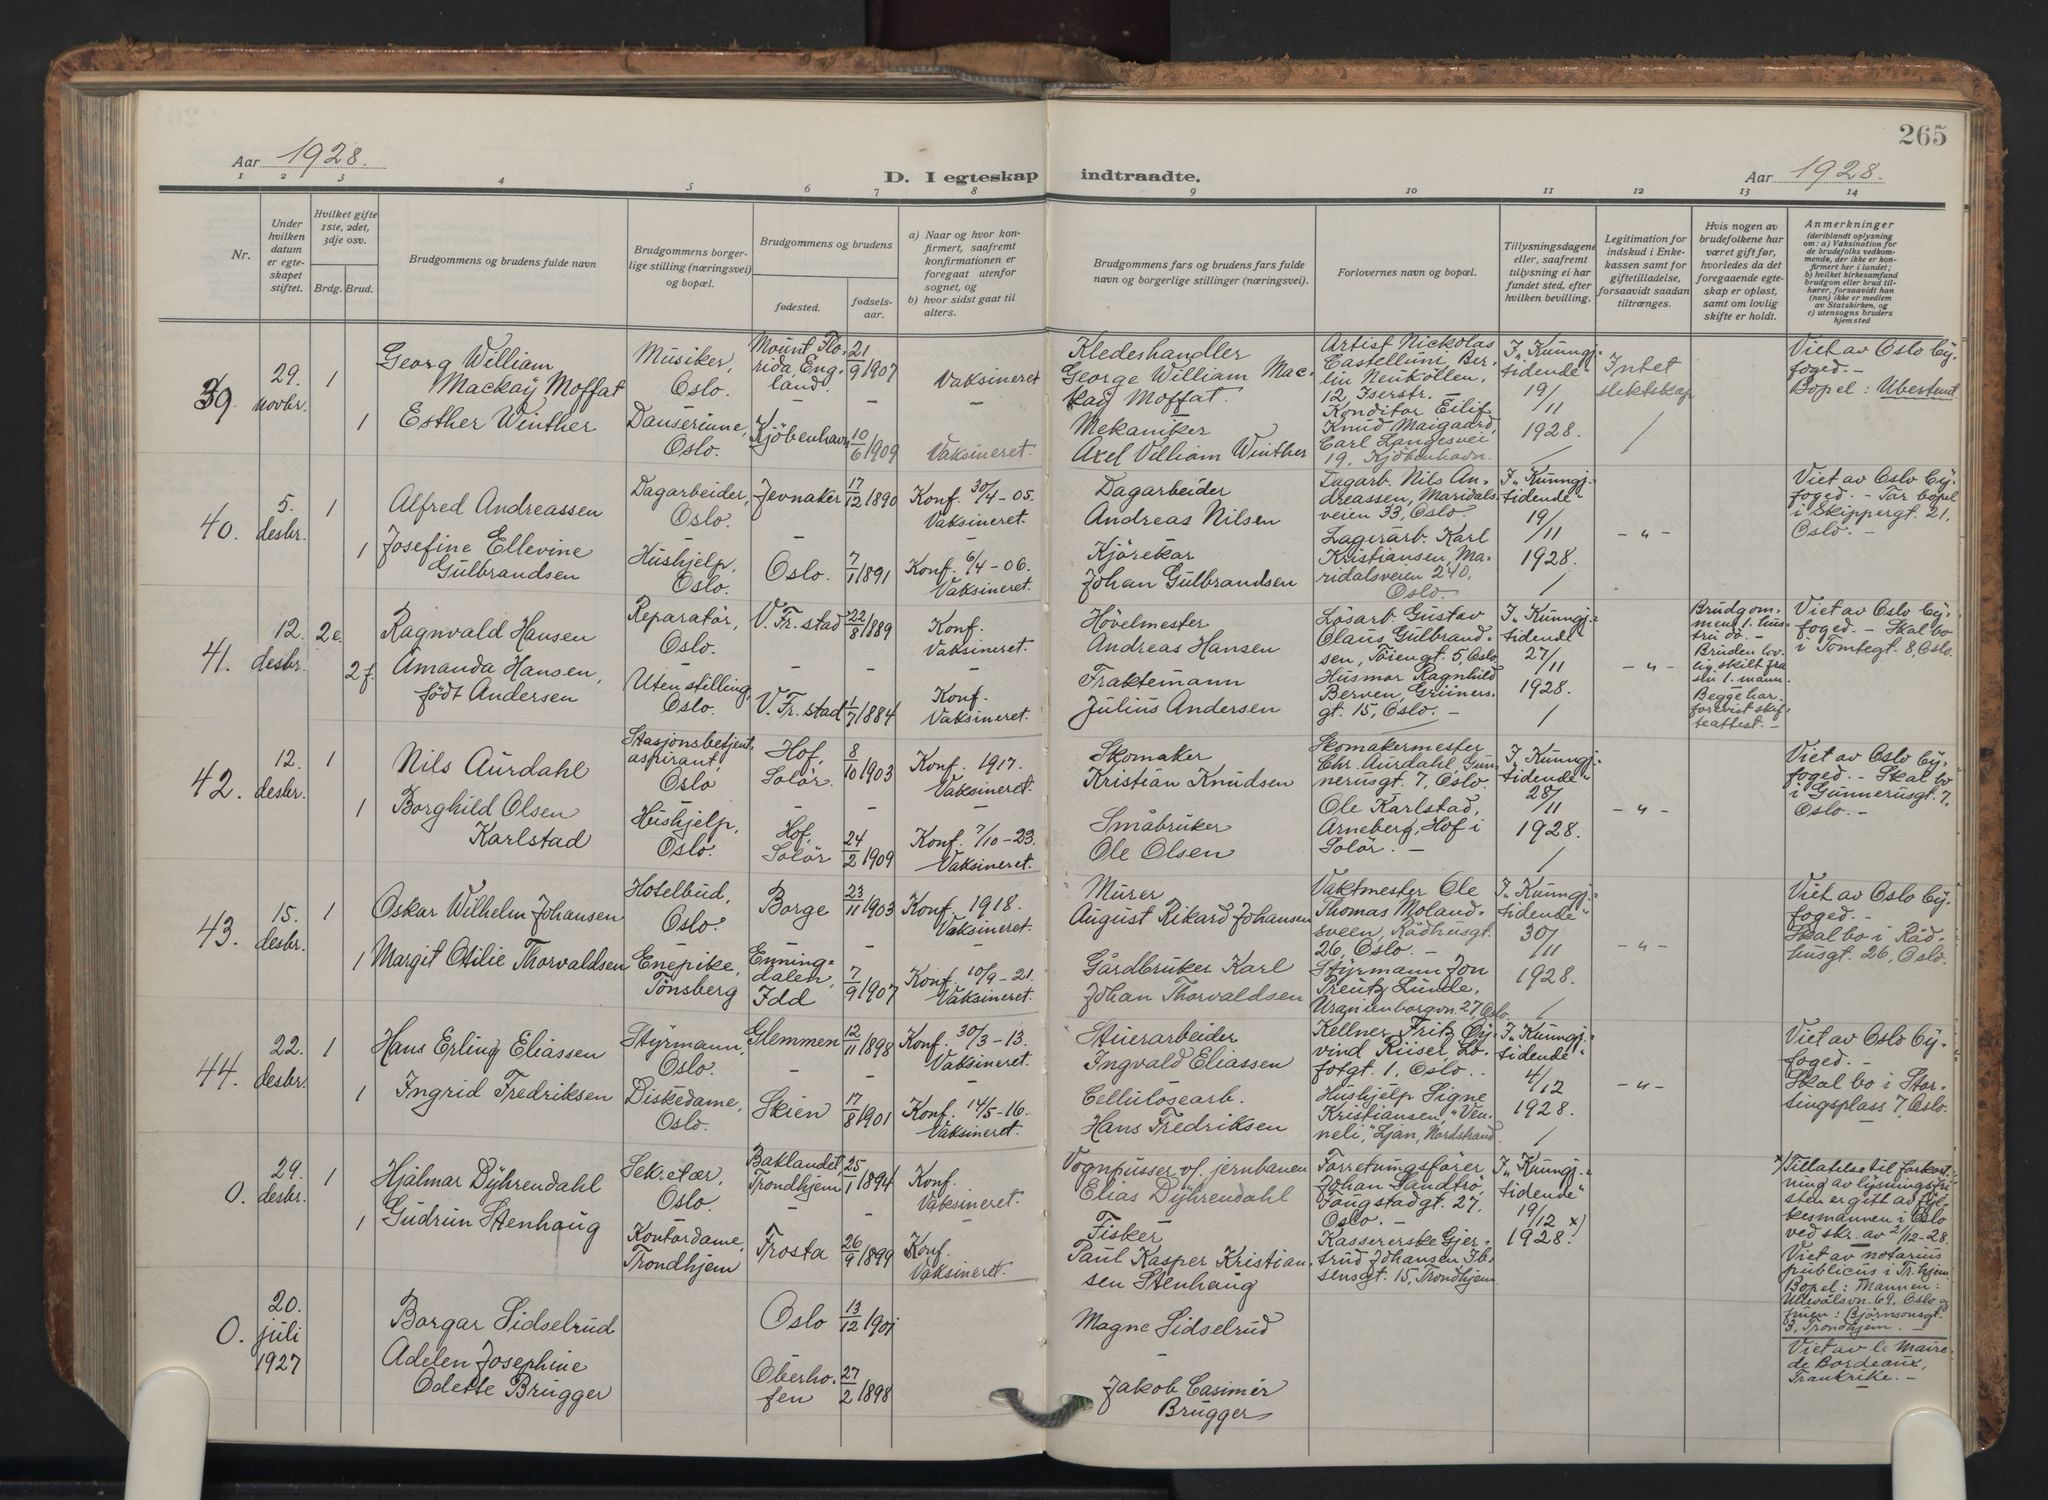 265
Aar 1928.
D. I egteskap indtraadte.
Aar 1928.
1 2 3 4 5 6 7 8 9 10 11 12 13 14
Nr.
Under hvilken datum er egteskapet stiftet.
Hvilket gifte 1ste, 2det, 3dje osv.
Brdg. Brud.
Brudgommens og brudens fulde navn
Brudgommens borgerlige stilling (næringsvei) og bopæl.
Brudgommens og brudens
fødested.
fødselsaar.
a) Naar og hvor konfirmert, saafremt konfirmationen er foregaat utenfor sognet, og
b) hvor sidst gaat til alters.
Brudgommens fars og brudens fars fulde navn og borgerlige stillinger (næringsvei).
Forlovernes navn og bopæl.
Tillysningsdagene eller, saafremt tillysning ei har fundet sted, efter hvilken bevilling.
Legitimation for indskud i Enkekassen samt for giftetilladelse, forsaavidt saadan tiltrænges.
Hvis nogen av brudefolkene har været gift før, hvorledes da det foregaaende egteskap er opløst, samt om lovlig skifte er holdt.
Anmerkninger
(deriblandt oplysning om: a) Vaksination for de brudefolks vedkommende, der ikke er konfirmert her i landet; b) hvilket kirkesamfund brudgom eller brud tilhører, forsaavidt han (hun) ikke er medlem av Statskirken, og c) utensogns bruders hjemsted
39. 29. novbr. 1
Georg William
Mackay Moffat
Musiker,
Oslo.
Mount Florida, England.
21/9 1907
Vaksineret
Kledeshandler
George William Mackay Moffat.
Artist Nickolas
Castelluni, Berlin Neukölln,
12 Iserstr. –
I „Kunngj.tidende"
19/11
1928.
Intet slektskap
Viet av Oslo Byfoged. –
Bopel: Ubestemt
1 Esther Winther
Danserinne,
Oslo.
Kjöbenhavn
10/6 1909
Vaksineret.
Mekaniker
Axel Villiam Winther
Konditor Eilif
Knud Maigaard,
Carl Langesvei
19, Kjöbenhavn.
40. 5. desbr. 1
Alfred Andreassen
Dagarbeider,
Oslo.
Jevnaker
17/12 1890
Konf. 30/4 – 05.
Vaksineret.
Dagarbeider
Andreas Nilsen
Dagarb. Nils Andreassen, Maridalsveien 33, Oslo.
I „Kunngj.tidende"
19/11
1928.
– " –
Viet av Oslo Byfoged. – Tar bopel
i Skippergt. 21,
Oslo. –
1 Josefine Ellevine
Gulbrandsen
Hushjelp,
Oslo.
Oslo.
7/1 1891
Konf. 6/4 – 06.
Vaksineret.
Kjörekar
Johan Gulbrandsen
Lagerarb. Karl
Kristiansen, Maridalsveien 240,
Oslo.
41. 12. desbr. 2 e.
Ragnvald Hansen
Reparatør,
Oslo.
V. Fr. stad
22/8 1889
Konf.
Vaksineret.
Hövelmester
Andreas Hansen
Lösarb. Gustav
Claus Gulbrandsen, Töiengt. 5, Oslo
I „Kunngj.tidende"
27/11
1928.
– " –
Brudgommens 1. hustru dö. –
Bruden lovlig skilt fra
sin 1. mann.
Begge har
forevist skifteattest. –
Viet av Oslo Byfoged. – Skal bo
i Tomtegt. 8, Oslo.
2 f. Amanda Hansen,
födt Andersen
Uten stilling,
Oslo.
V. Fr. stad
1/7 1884
Konf.
Vaksineret.
Fraktemann
Julius Andersen
Husmor Ragnhild
Berven, Grünersgt. 15, Oslo. –
42. 12. desbr. 1
Nils Aurdahl
Stasjonsbetjentaspirant,
Oslo
Hof,
Solör.
8/10 1903
Konf. 1917.
Vaksineret.
Skomaker
Kristian Knudsen
Skomakermester
Chr. Aurdahl, Gunnerusgt. 7, Oslo.
I „Kunngj.tidende"
28/11
1928.
– " –
Viet av Oslo Byfoged. – Skal bo
i Gunnerusgt. 7,
Oslo. –
1 Borghild Olsen
Karlstad
Hushjelp,
Oslo.
Hof,
Solör
24/2 1909
Konf. 7/10 – 23.
Vaksineret.
Småbruker
Ole Olsen
Ole Karlstad,
Arneberg, Hof i
Solör. –
43. 15. desbr. 1
Oskar Wilhelm Johansen
Hotelbud,
Oslo.
Borge
23/11 1903
Konf. 1918.
Vaksineret.
Murer
August Rikard Johansen
Vaktmester Ole
Thomas Molandsveen, Rådhusgt.
26, Oslo. –
I „Kunngj.tidende"
30/11
1928.
– " –
Viet av Oslo Byfoged. –
Skal bo i Rådhusgt. 26, Oslo.
1 Margit Otilie Thorvaldsen
Enepike,
Tönsberg
Enningdalen,
Idd
7/9 1907
Konf. 10/9 – 21.
Vaksineret.
Gårdbruker Karl
Johan Thorvaldsen
Styrmann Jon
Preutz Lunde,
Uranienborgvn. 27 Oslo.
44. 22. desbr. 1
Hans Erling Eliassen
Styrmann,
Oslo.
Glemmen
12/11 1898
Konf. 30/3 – 13.
Vaksineret.
Stuerarbeider
Ingvald Eliassen
Kellner Fritz Öyvind Riiser, Lofotgt. 1, Oslo. –
I „Kunngj.tidende"
4/12
1928.
– " –
Viet av Oslo Byfoged. –
Skal bo i Stortingsplass 7, Oslo.
1 Ingrid Fredriksen
Diskedame,
Oslo.
Skien
17/8 1901
Konf. 14/5 – 16.
Vaksineret.
Cellulosearb.
Hans Fredriksen
Hushjelp Signe
Kristiansen, „Venneli," Ljan, Nordstrand.
0. 29. desbr. 1
Hjalmar Dyhrendahl
Sekretær,
Oslo.
Baklandet,
Trondhjem
25/1 1894
Konf.
Vaksineret.
Vognpusser vf. jernbanen
Elias Dyhrendahl
Forretningsfører
Johan Sandtrö
Faugstadgt. 27,
Oslo. –
I „Kunngj.tidende"
19/12 x)
1928.
x) Tillatelse til forkortning av lysningsfristen er gitt av fylkesmannen i Oslo
ved skr. av 21/12-28.
Viet av notarius
publicus i Tr.hjem.
Bopel: Mannen:
Ullevålsvn. 69, Oslo og
fruen: Björnsonsgt.
3, Trondhjem. –
1 Gudrun Stenhaug
Kontordame,
Trondhjem
Frosta
26/9 1899
Konf.
Vaksineret.
Fisker
Paul Kasper Kristiansen Stenhaug
Kassererske Gjertrud Johansen Ibsensgt. 15, Trondhjem
0. 20. juli 1927
Borgar Sidselrud
Oslo
13/12 1901
Magne Sidselrud
Viet av le Maire
de Bordeaux,
Frankrike. –
Adelen Josephine
Odette Brugger
Oberhofen
27/2 1898
Jakob Casimir
Brugger